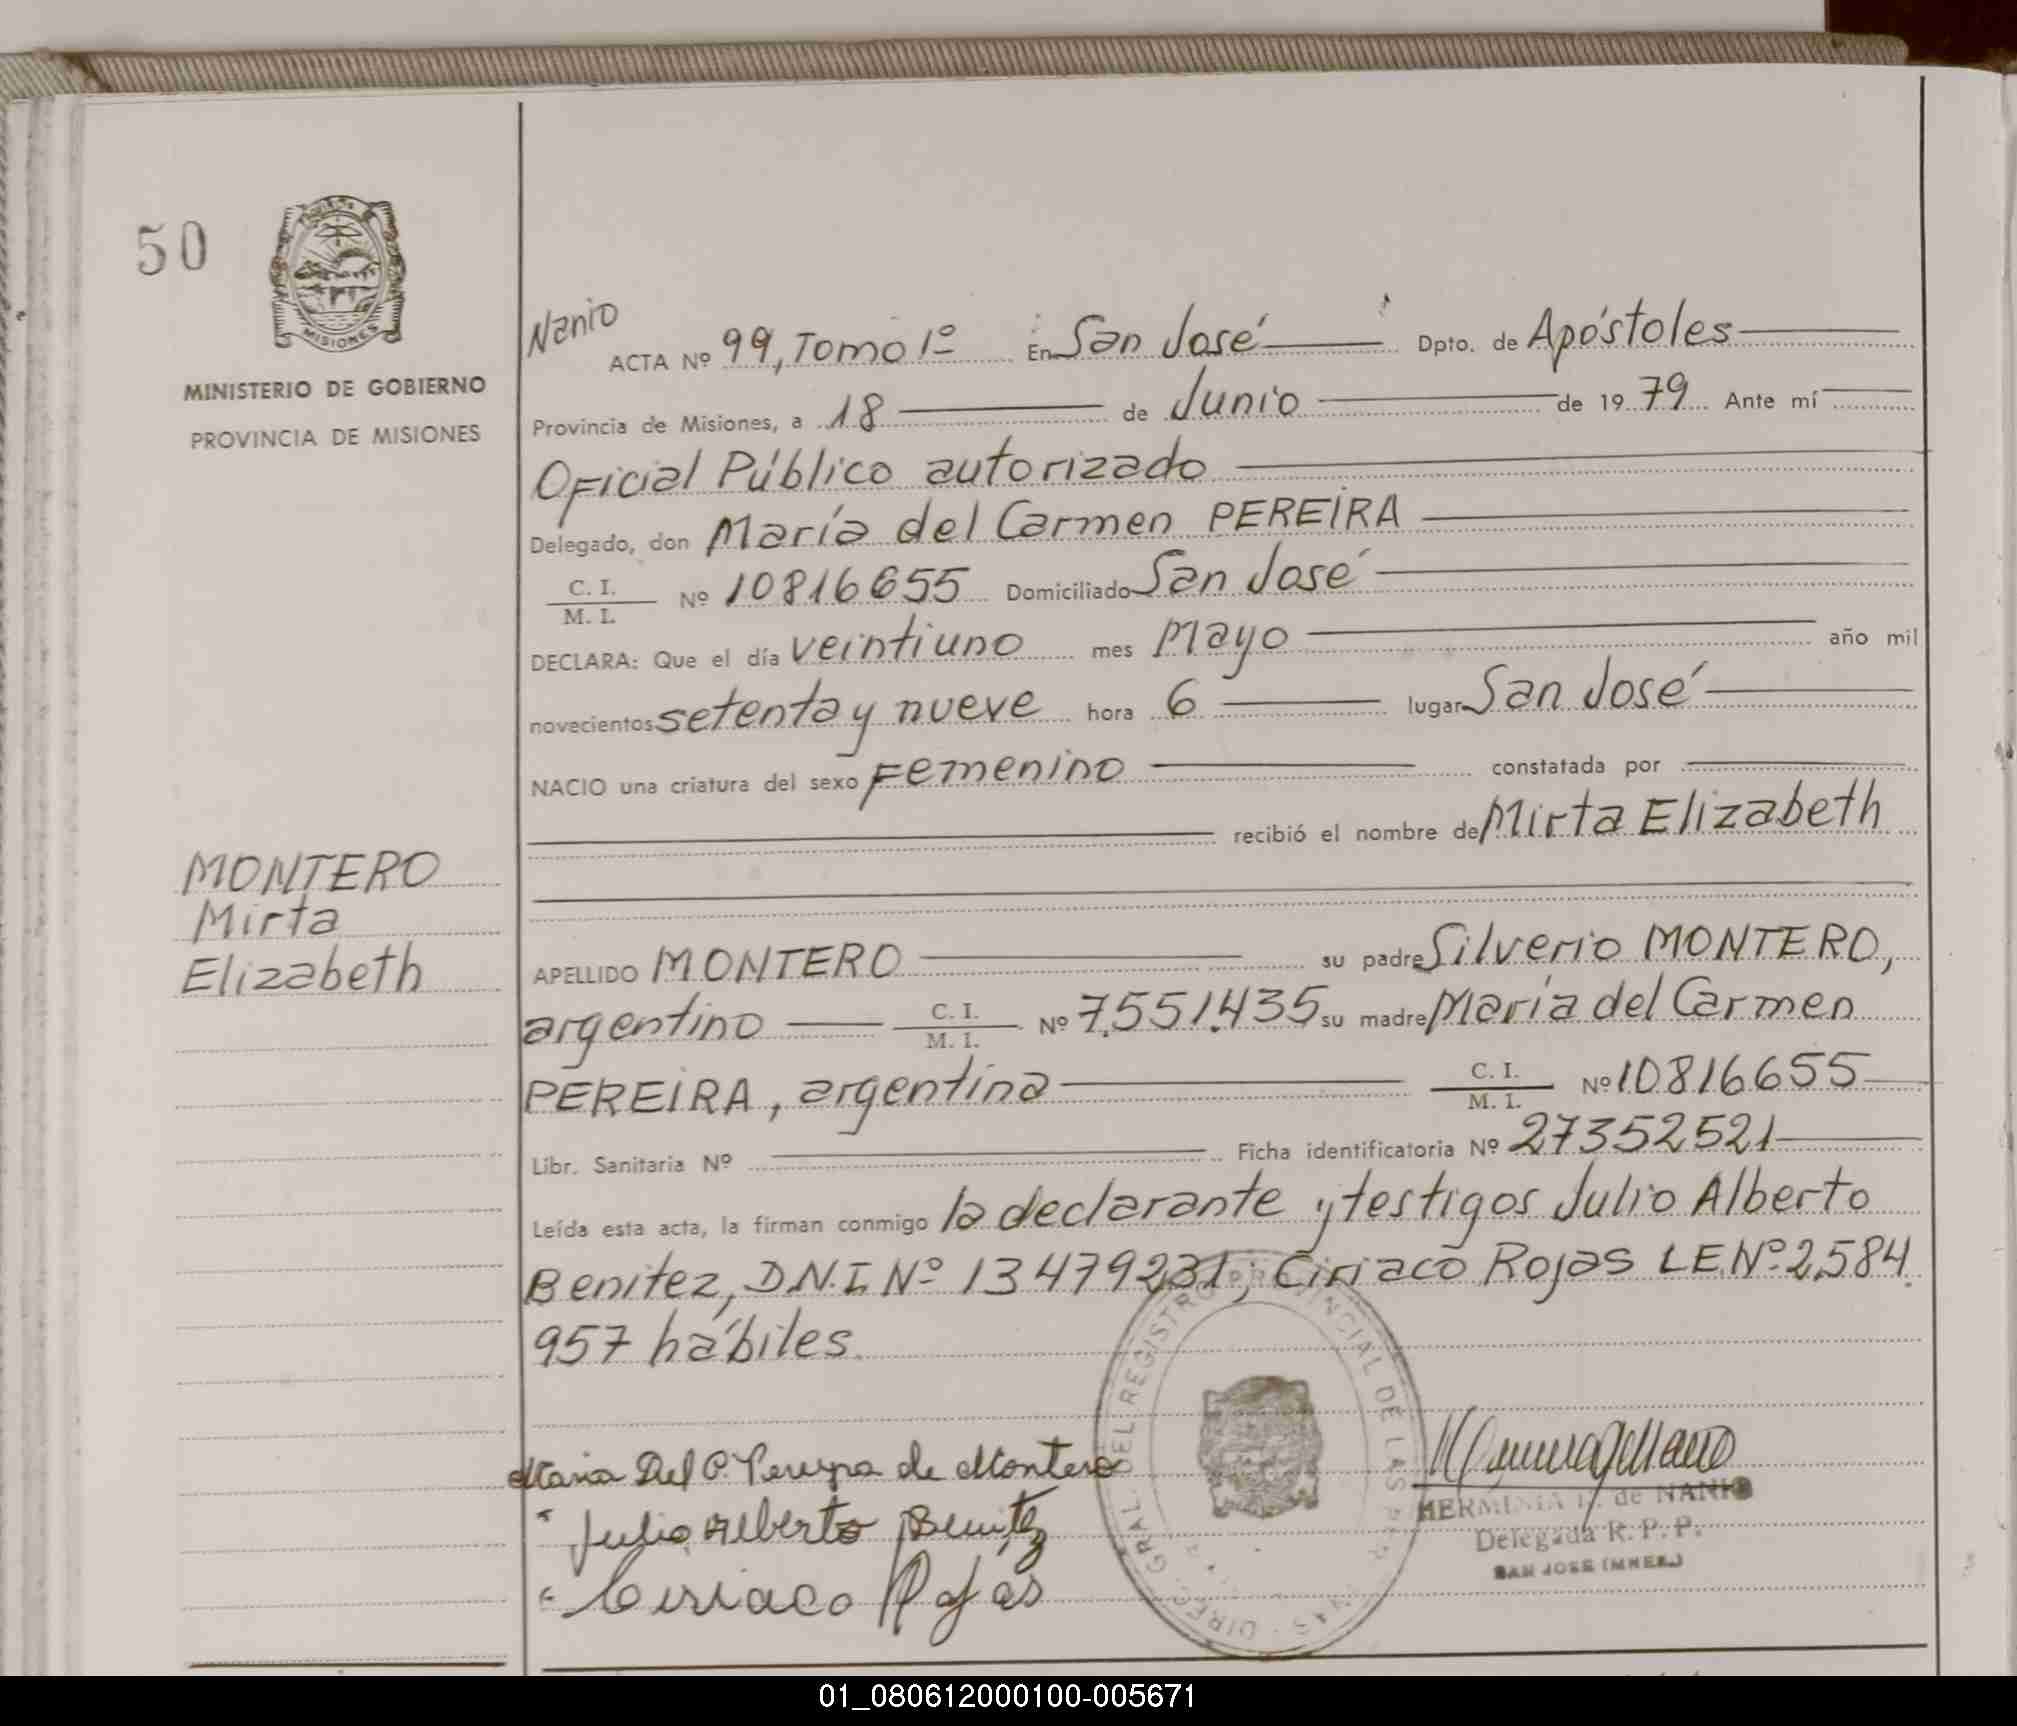 50
MISIONES
MINISTERIO DE GOBIERNO
PROVINCIA DE MISIONES
Nanio
ACTA Nº 99, Tomo 1º En San José Dpto. de Apóstoles
Provincia de Misiones, a 18 de Junio de 1979 Ante mí
Oficial Público autorizado
Delegado, don María del Carmen PEREIRA
C. I. / M. I. Nº 10816655 Domiciliado San José
DECLARA: Que el día veintiuno mes Mayo año mil
novecientos setenta y nueve hora 6 lugar San José
NACIO una criatura del sexo Femenino constatada por
recibió el nombre de Mirta Elizabeth
MONTERO
Mirta
Elizabeth
APELLIDO MONTERO su padre Silverio MONTERO,
argentino C. I. / M. I. Nº 7.551.435 su madre María del Carmen
PEREIRA, argentina C. I. / M. I. Nº 10816655
Libr. Sanitaria Nº Ficha identificatoria Nº 27352521
Leída esta acta, la firman conmigo la declarante y testigos Julio Alberto
Benitez, D.N.I Nº 13479231; Ciriaco Rojas L.E.Nº 2.584.
957 hábiles.
Maria Del C. Pereyra de Montero
Julio Alberto Benitez
Ciriaco Rojas
DIREC. GRAL. DEL REGISTRO PROVINCIAL DE LAS
HERMINIA de NANIO
Delegada R. P. P.
SAN JOSE (MNES.)
01_080612000100-005671